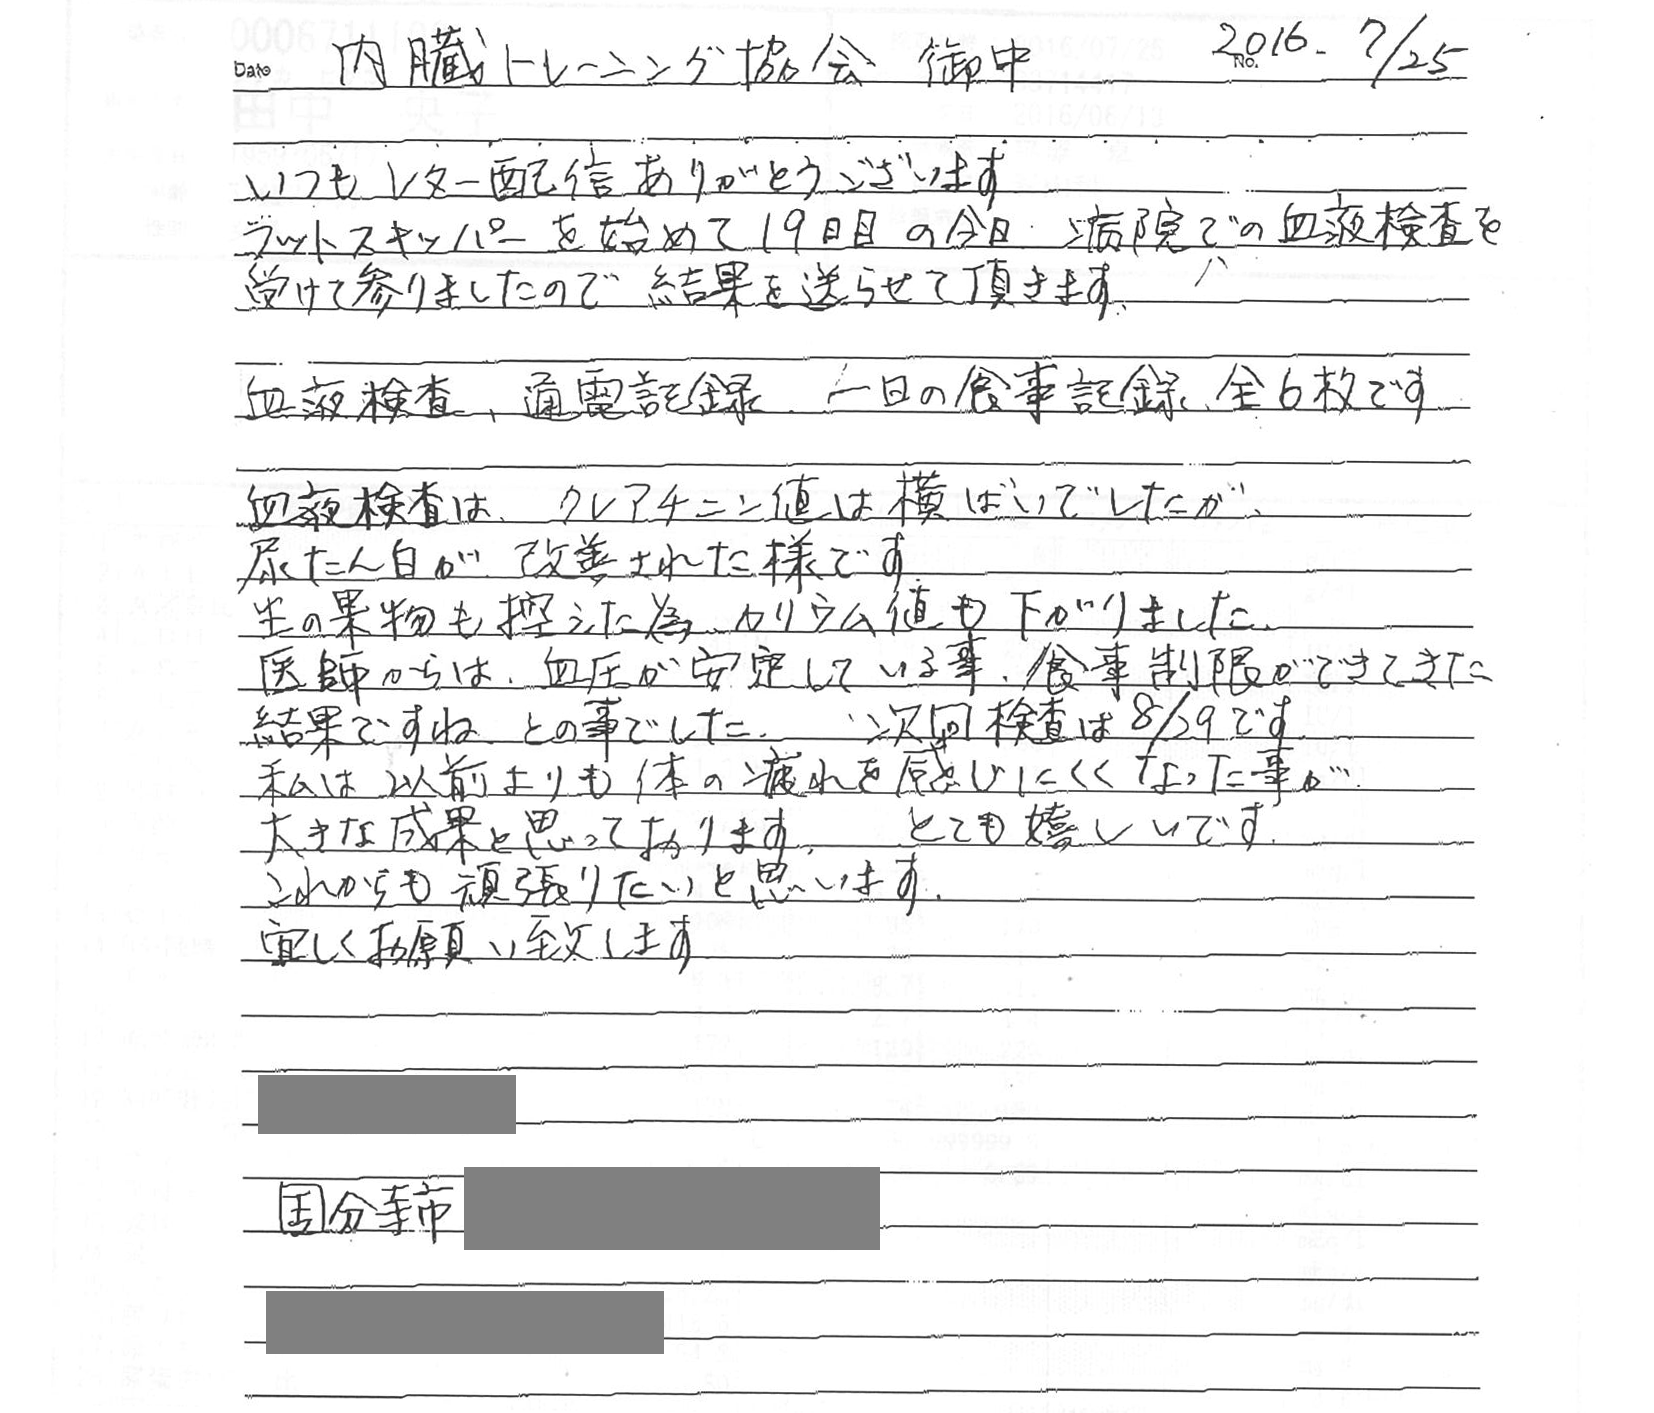 内臓トレーニング協会 御中 2016. 7/25
Date No.
いつもレター配信ありがとうございます
フットスキッパーを始めて19日目の今日、病院での血液検査を
受けて参りましたので結果を送らせて頂きます、
血液検査、通電記録、一日の食事記録、全6枚です
血液検査は、クレアチニン値は横ばいでしたが、
尿たん白が改善された様です
生の果物も控えた為、カリウム値も下がりました、
医師からは、血圧が安定している事、食事制限ができてきた
結果ですね との事でした、 次回検査は8/29です
私は以前よりも体の疲れを感じにくくなった事が
大きな成果と思っております、 とても嬉しいです、
これからも頑張りたいと思います、
宜しくお願い致します
国分寺市